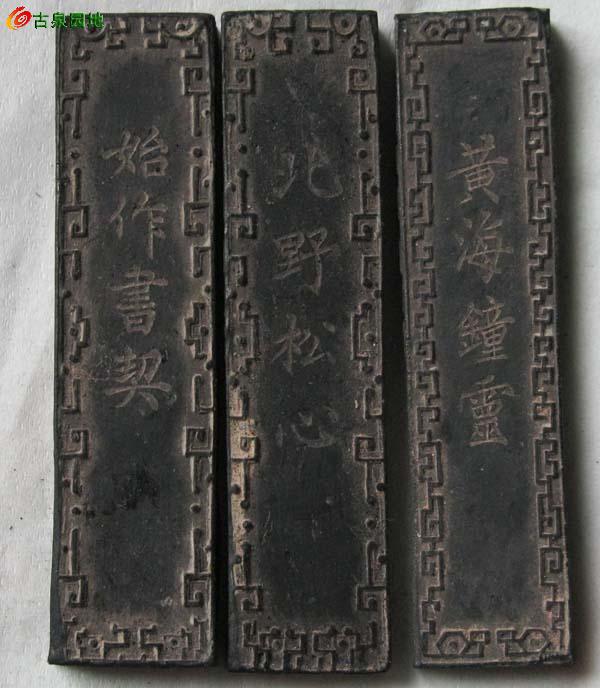 古泉园地
始作書契
北野松心
黃海鐘靈